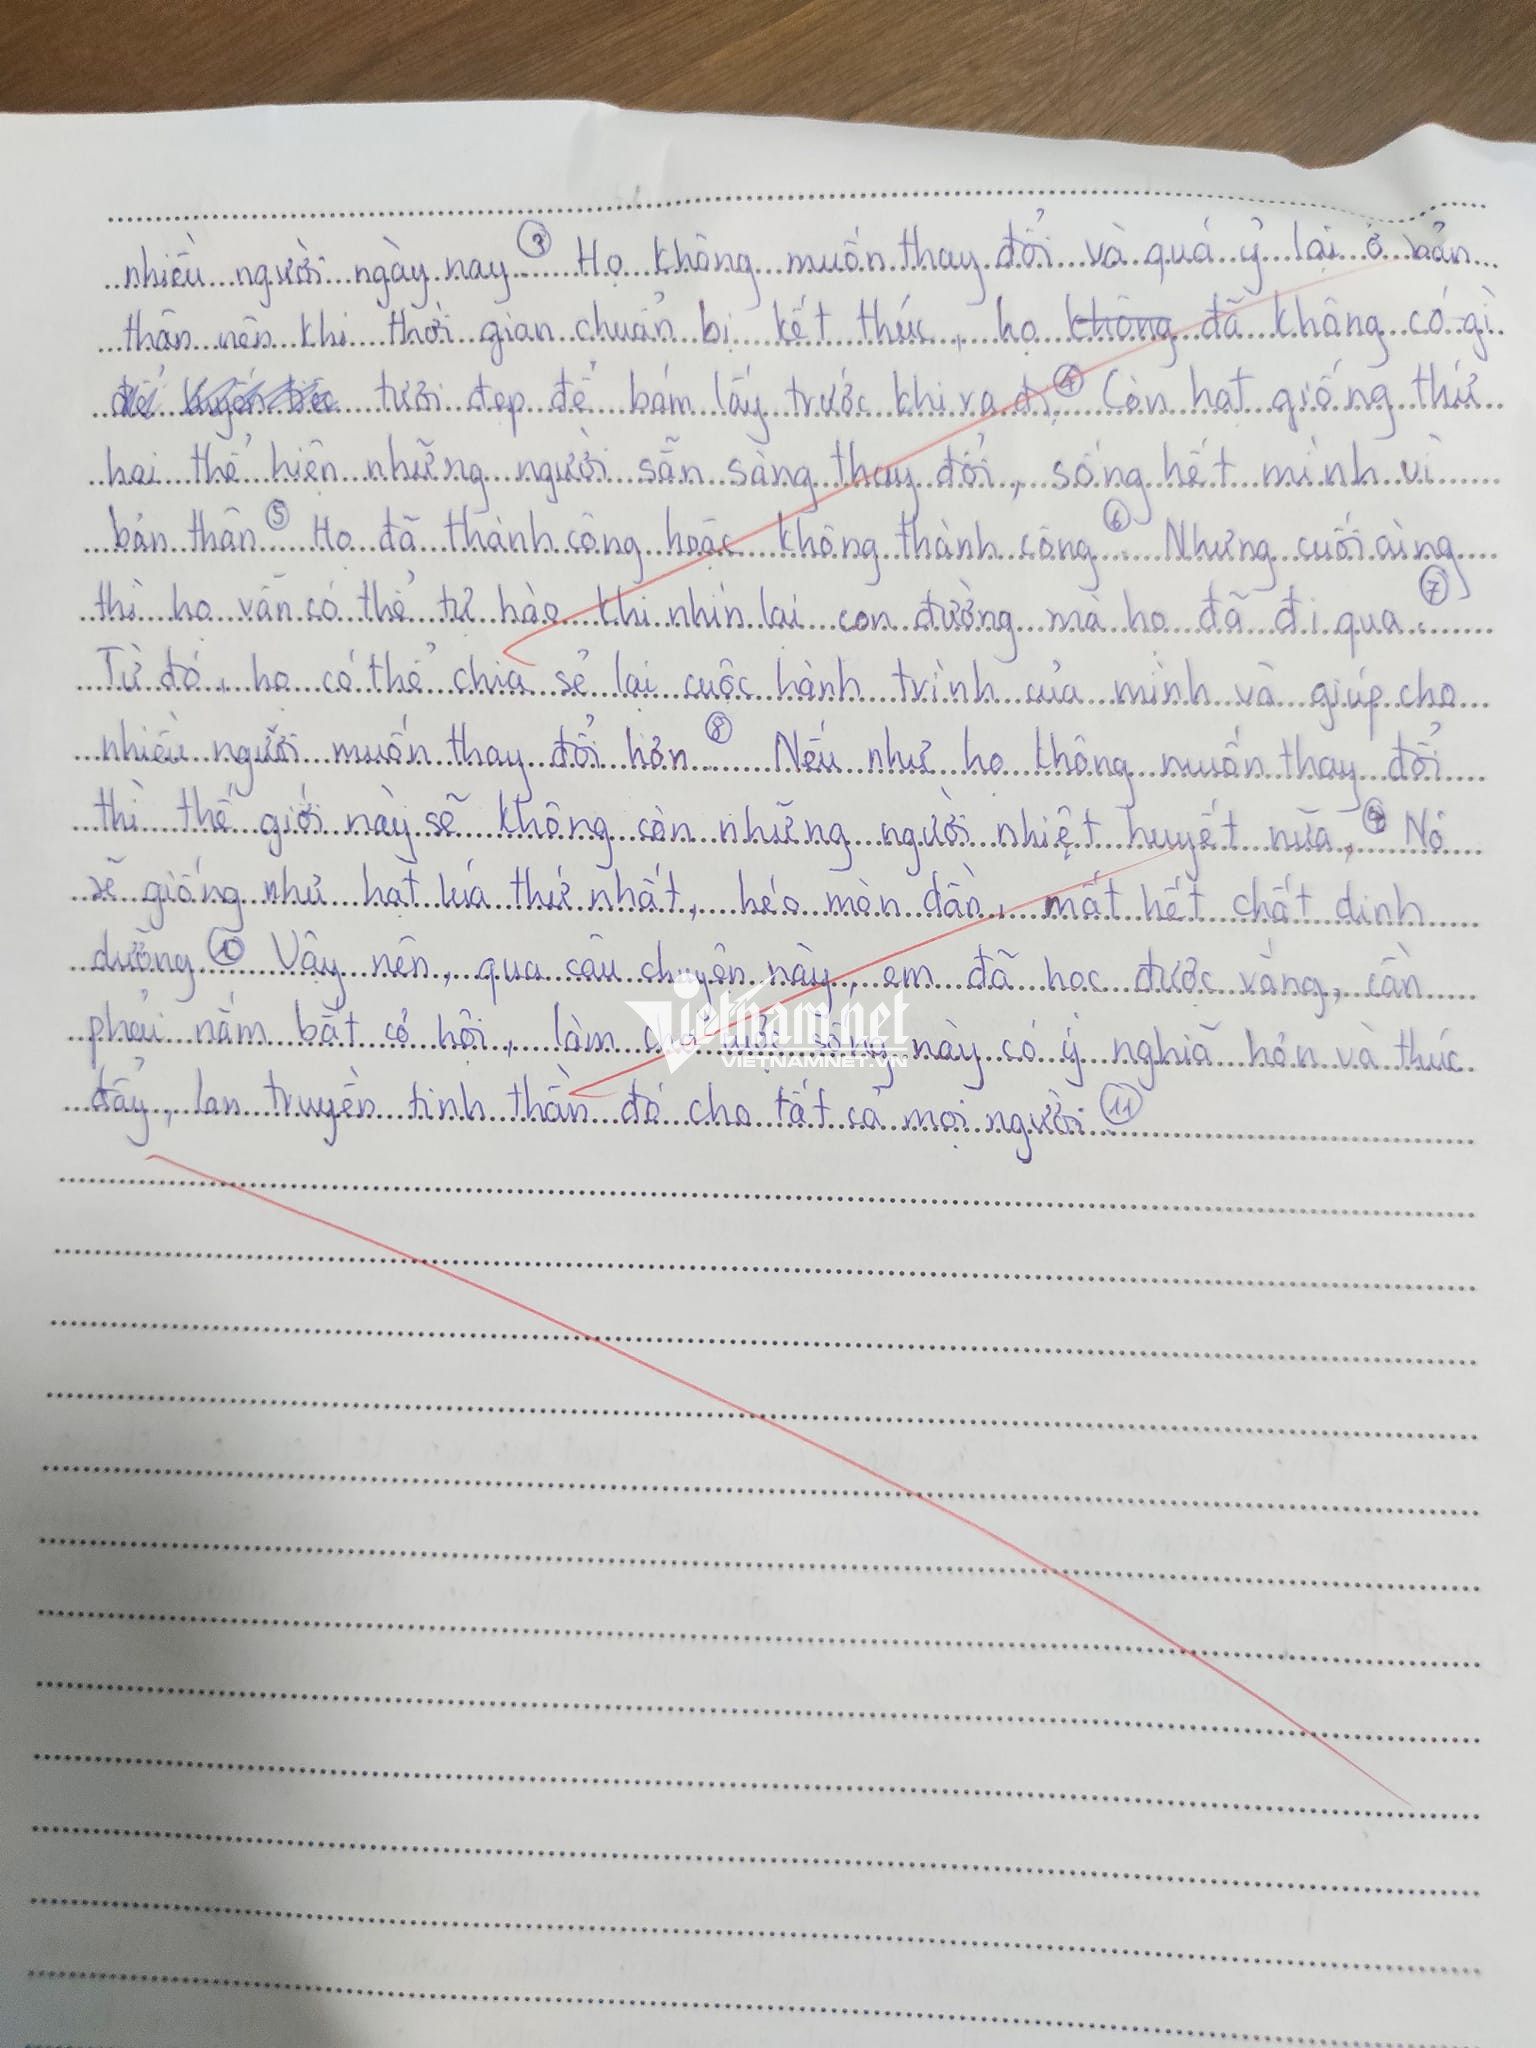 nhiều người ngày nay. ③ Họ không muốn thay đổi và quá ỷ lại ở bản
thân nên khi thời gian chuẩn bị kết thúc, họ không đã không có gì
để tươi đẹp để bám lấy trước khi ra đi ④ Còn hạt giống thứ
hai thể hiện những người sẵn sàng thay đổi, sống hết mình vì
bản thân ⑤ Họ đã thành công hoặc không thành công ⑥ Nhưng cuối cùng
thì họ vẫn có thể tự hào khi nhìn lại con đường mà họ đã đi qua. ⑦
Từ đó, họ có thể chia sẻ lại cuộc hành trình của mình và giúp cho
nhiều người muốn thay đổi hơn ⑧ Nếu như họ không muốn thay đổi
thì thế giới này sẽ không còn những người nhiệt huyết nữa. ⑨ Nó
sẽ giống như hạt lúa thứ nhất, héo mòn dần, mất hết chất dinh
dưỡng ⑩ Vậy nên, qua câu chuyện này, em đã học được rằng, cần
phải nắm bắt cơ hội, làm cho cuộc sống này có ý nghĩa hơn và thúc
đẩy, lan truyền tinh thần đó cho tất cả mọi người ⑪
Vietnam.net
VIETNAMNET.VN